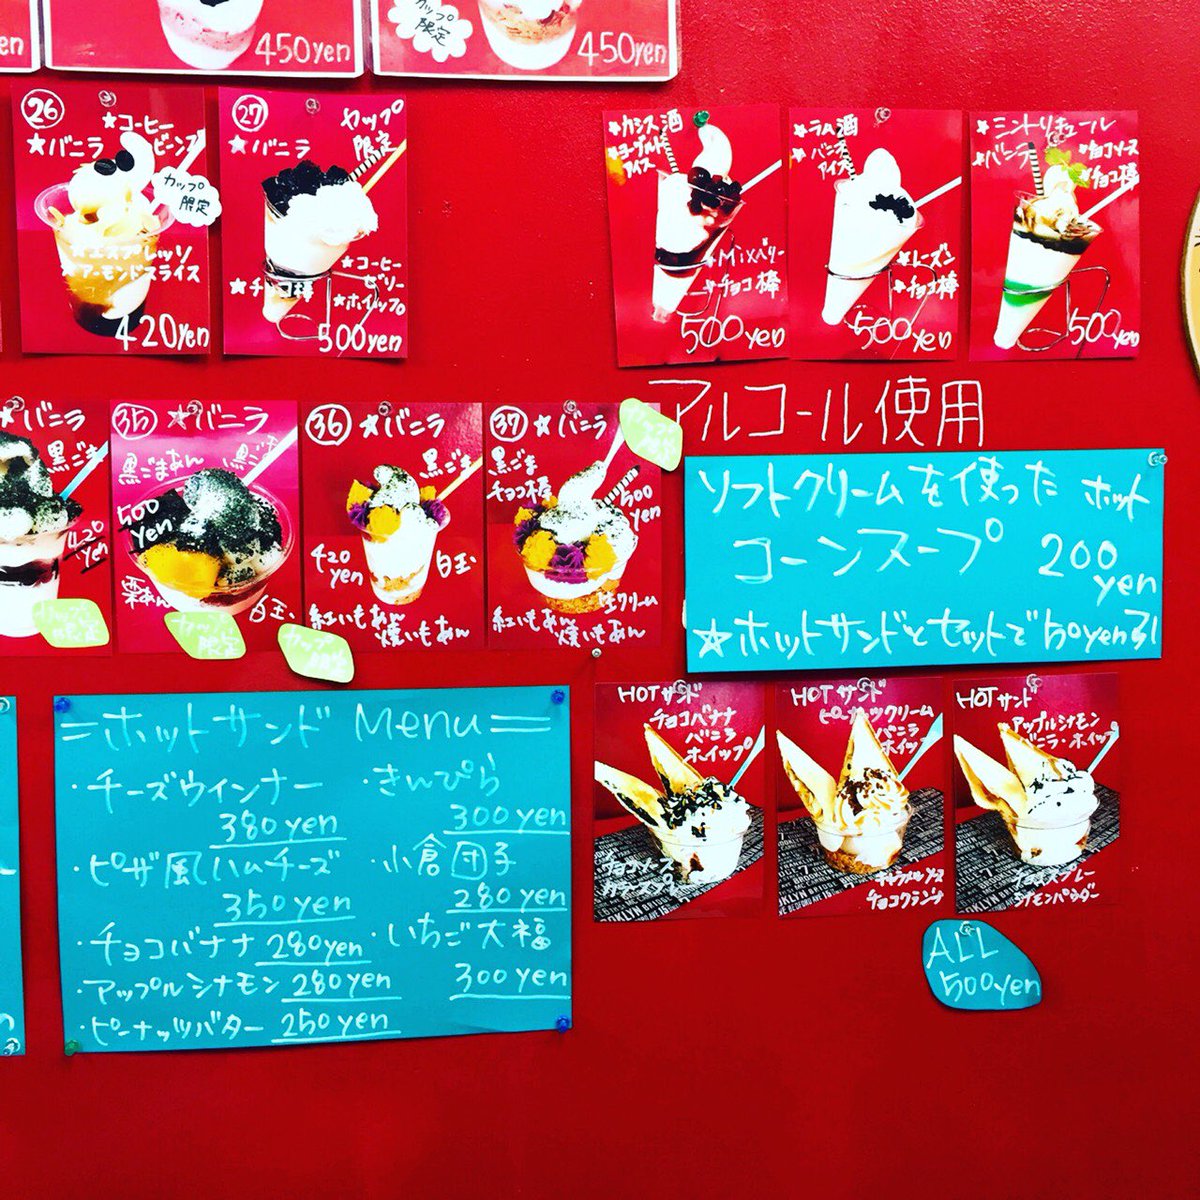 en
450yen
カップ
限定
450yen
26
★コーヒー
ビーンズ
★バニラ
カップ
限定
★エスプレッソ
★アーモンドスライス
420yen
27
カップ
限定
★バニラ
★コーヒー
ゼリー
★チョコ棒
★ホイップ
500yen
★カシス酒
★ヨーグルト
アイス
★Mixベリー
★チョコ棒
500yen
★ラム酒
★バニラ
アイス
★レーズン
★チョコ棒
500yen
★ミントリキュール
★バニラ
★チョコソース
★チョコ棒
500yen
アルコール使用
★バニラ
黒ごま
420
yen
35
★バニラ
黒ごまあん
500
yen
栗あん
白玉
カップ
限定
36
★バニラ
黒ごま
420
yen
白玉
紅いもあん
焼いもあん
37
★バニラ
黒ごま
チョコ棒
500
yen
生クリーム
紅いもあん
焼いもあん
ソフトクリームを使った ホット
コーンスープ 200
yen
☆ホットサンドとセットで50yen引
=ホットサンド Menu=
・チーズウインナー
380yen
・ピザ風ハムチーズ
350yen
・チョコバナナ 280yen
・アップルシナモン 280yen
・ピーナッツバター 250yen
・きんぴら
300yen
・小倉団子
280yen
・いちご大福
300yen
HOTサンド
チョコバナナ
バニラ
ホイップ
チョコソース
HOTサンド
ピーナッツクリーム
バニラ
ホイップ
キャラメルソース
チョコクランチ
HOTサンド
アップルシナモン
バニラ・ホイップ
チョコスプレー
シナモンパウダー
ALL
500yen